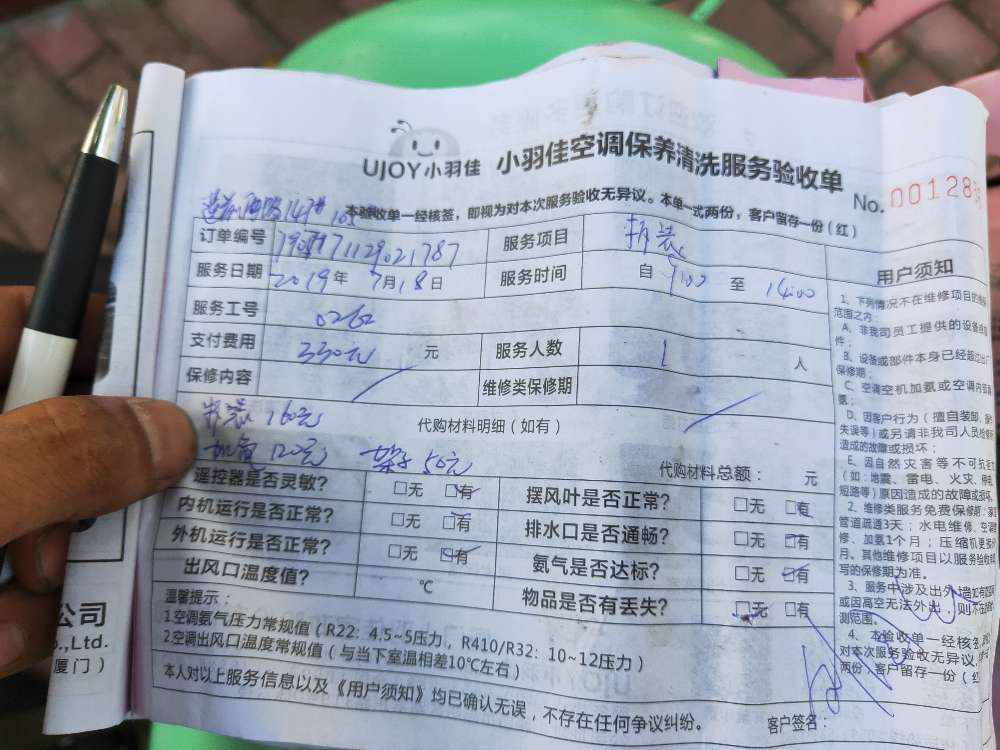 UJOY小羽佳 小羽佳空调保养清洗服务验收单
No.
147#
本验收单一经核签，即视为对本次服务验收无异议。本单一式两份，客户留存一份（红）
订单编号 服务项目 拆装
服务日期 2019年7月18日 服务时间 自 9:00 至 14:00
服务工号 0262
支付费用 330元 元 服务人数 1 人
保修内容 维修类保修期
拆装 160元 代购材料明细（如有）
120元 架子50元 代购材料总额： 元
遥控器是否灵敏? □无 □有 摆风叶是否正常? □无 □有
内机运行是否正常? □无 □有 排水口是否通畅? □无 □有
外机运行是否正常? □无 □有 氨气是否达标? □无 □有
出风口温度值? ℃ 物品是否有丢失? □无 □有
温馨提示：
1.空调氨气压力常规值（R22：4.5~5压力，R410/R32：10~12压力）
2.空调出风口温度常规值（与当下室温相差10℃左右）
本人对以上服务信息以及《用户须知》均已确认无误，不存在任何争议纠纷。
客户签名：
用户须知
1、下列情况不在维修项目的
范围之内：
A、非我司员工提供的设备或
件；
B、设备或部件本身已经超过
保修期；
C、空调空机加氨或空调内
氨；
D、因客户行为（擅自装卸、
失误等）或另请非我司人员
造成的故障或损坏；
E、因自然灾害等不可抗
（如：地震、雷电、火灾、
短路等）原因造成的故障或损
2、维修类服务免费保修期：
管道疏通3天；水电维修、空调
修、加氨1个月；压缩机更
月。其他维修项目以服务验收
写的保修期为准。
3、服务中涉及出外墙
或因高空无法外出，则
测范围。
4、本验收单一经核
对本次服务验收无异议。
两份，客户留存一份（红
公司
.,Ltd.
厦门）